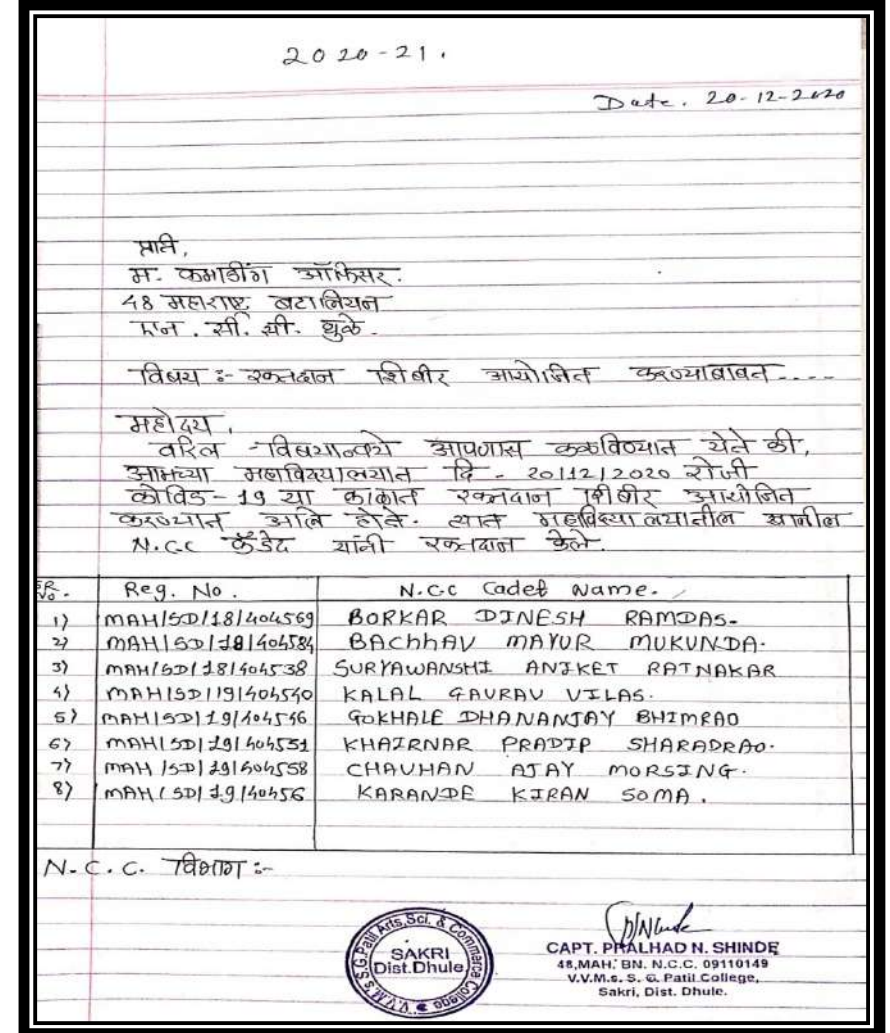 2020-21.
Date. 20-12-2020
प्रति,
म. कमाडींग ऑफिसर.
48 महाराष्ट्र बटालियन
एन. सी. सी. धुळे.
विषय :- रक्तदान शिबीर आयोजित करण्याबाबत....
महोदय,
वरिल विषयान्वये आपणास कळविण्यात येते की,
आमच्या महाविदयालयात दि - 20/12/2020 रोजी
कोविड-19 या काळात रक्तदान शिबीर आयोजित
करण्यात आले होते. त्यात महाविद्यालयातील खालील
N.C.C कॅडेट यांनी रक्तदान केले.
SR. No. Reg. No. N.C.C Cadet Name.
1) MAH/SD/18/404569 BORKAR DINESH RAMDAS.
2) MAH/SD/18/404584 BAChhAV MAYUR MUKUNDA.
3) MAH/SD/18/404538 SURYAWANSHI ANIKET RATNAKAR
4) MAH/SD/19/404540 KALAL GAURAV VILAS.
5) MAH/SD/19/404546 GOKHALE DHANANJAY BHIMRAO
6) MAH/SD/19/404531 KHAIRNAR PRADIP SHARADRAO.
7) MAH/SD/19/404558 CHAUHAN AJAY MORSING.
8) MAH/SD/19/40456 KARANDE KIRAN SOMA.
N.C.C. विभाग :-
V.V.M.s S.G.Patil Arts,Sci. & Commerce College
SAKRI
Dist.Dhule
CAPT. PRALHAD N. SHINDE
48,MAH. BN. N.C.C. 09110149
V.V.M.s. S. G. Patil College,
Sakri, Dist. Dhule.